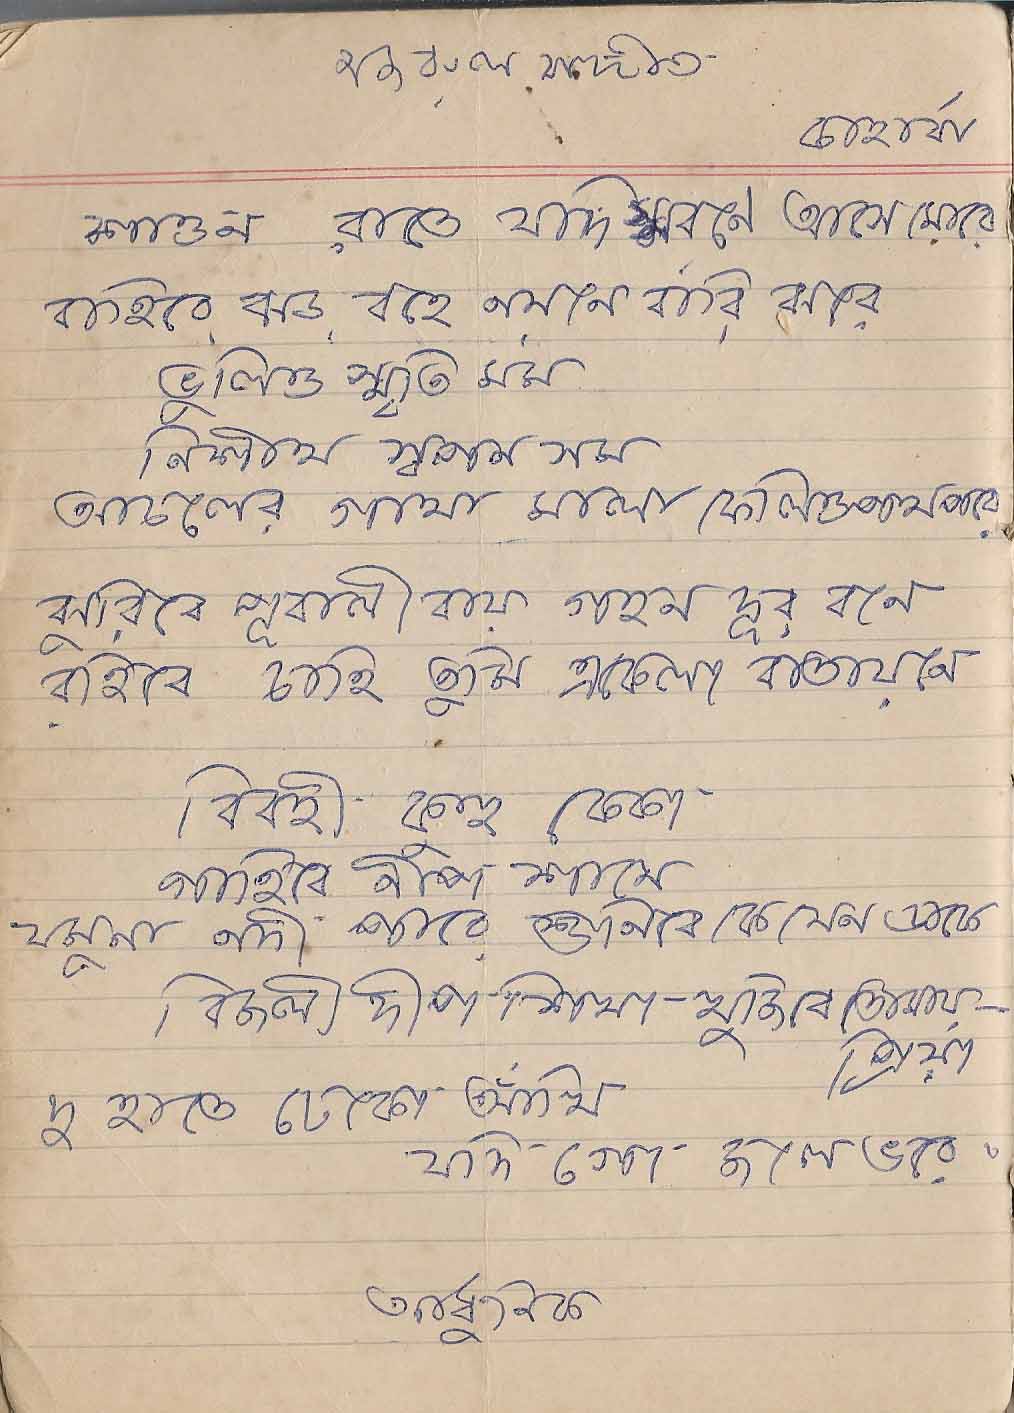 নজরুল সঙ্গীত
কাহারবা
শাওন রাতে যদি স্মরণে আসে মোরে
বাহিরে ঝড় বহে নয়নে বারি ঝরে
ভুলিও স্মৃতি মম
নিশীথ স্বপন সম
আঁচলের গাথা মালা ফেলিও পথ পরে
ঝুরিবে পূবালী বায় গহন দূর বনে
রহিবে চাহি তুমি একেলা বাতায়নে
বিরহী কুহু কেকা
গাহিবে নীপ শাখে
যমুনা নদী পারে শুনিবে কে যেন ডাকে
বিজলী দীপ শিখা - খুজিবে তোমায় -
প্রিয়া
দু হাতে ঢেকো আঁখি
যদি গো জলে ভরে ৷
আধুনিক